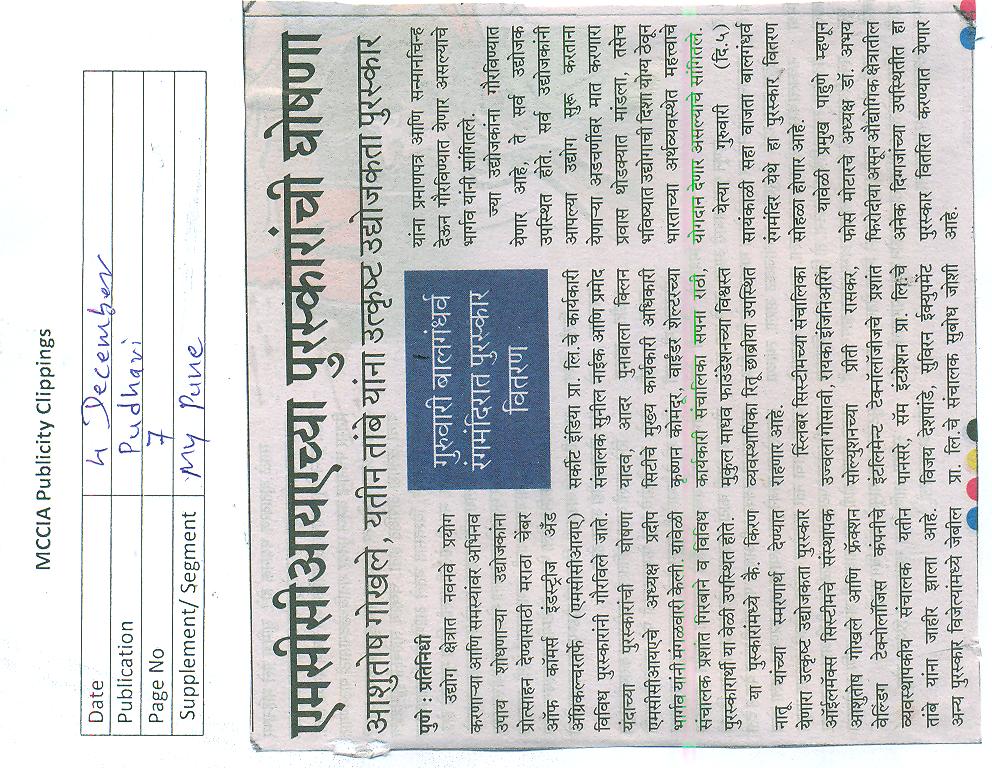 MCCIA Publicity Clippings
Date 4 December
Publication Pudhari
Page No 7
Supplement/ Segment My Pune
एमसीसीआयएच्या पुरस्कारांची घोषणा
आशुतोष गोखले, यतीन तांबे यांना उत्कृष्ट उद्योजकता पुरस्कार
पुणे : प्रतिनिधी
उद्योग क्षेत्रात नवनवे प्रयोग
करणाऱ्या आणि समस्यांवर अभिनव
उपाय शोधणाऱ्या उद्योजकांना
प्रोत्साहन देण्यासाठी मराठा चेंबर
ऑफ कॉमर्स इंडस्ट्रीज अँड
ॲग्रिकल्चरतर्फे (एमसीसीआयए)
विविध पुरस्कारांनी गौरविले जाते.
यंदाच्या पुरस्कारांची घोषणा
एमसीसीआयएचे अध्यक्ष प्रदीप
भार्गव यांनी मंगळवारी केली. यावेळी
संचालक प्रशांत गिरबाने व विविध
पुरस्कारार्थी या वेळी उपस्थित होते.
या पुस्कारांमध्ये कै. किरण
नातू यांच्या स्मरणार्थ देण्यात
येणारा उत्कृष्ट उद्योजकता पुरस्कार
ऑईलमॅक्स सिस्टीमचे संस्थापक
आशुतोष गोखले आणि फ्रॅक्शन
वेल्डिंग टेक्नोलॉजिस कंपनीचे
व्यवस्थापकीय संचालक यतीन
तांबे यांना जाहीर झाला आहे.
अन्य पुरस्कार विजेत्यांमध्ये जेबील
गुरुवारी बालगंधर्व
रंगमंदिरात पुरस्कार
वितरण
सर्कीट इंडिया प्रा. लि.चे कार्यकारी
संचालक सुनील नाईक आणि प्रमोद
यादव, आदर पुनावाला क्लिन
सिटीचे मुख्य कार्यकारी अधिकारी
कृष्णन कोमंदूर, वाईंडर शेल्टरच्या
कार्यकारी संचालिका सपना राठी,
मुकुल माधव फाउंडेशनच्या विश्वस्त
व्यवस्थापिका रितू छाब्रीया उपस्थित
राहणार आहे.
स्लिंबर सिस्टीमच्या संचालिका
उज्वला गोसावी, रायका इंजिनिअरिंग
सोल्युशनच्या प्रीती रासकर,
इंटलिमेन्ट टेक्नॉलॉजीजचे प्रशांत
पानसरे, सॅम इंटग्रेशन प्रा. लि.चे
विजय देशपांडे, सुविरन ईक्युपमेंट
प्रा. लि.चे संचालक सुबोध जोशी
यांना प्रमाणपत्र आणि सन्मानचिन्ह
देऊन गौरविण्यात येणार असल्याचे
भार्गव यांनी सांगितले.
ज्या उद्योजकांना गौरविण्यात
येणार आहे, ते सर्व उद्योजक
उपस्थित होते. सर्व उद्योजकांनी
आपल्या उद्योग सुरू करताना
येणाऱ्या अडचणींवर मात करणारा
प्रवास थोडक्यात मांडला, तसेच
भविष्यात उद्योगाची दिशा योग्य ठेवून
भारताच्या अर्थव्यवस्थेत महत्त्वाचे
योगदान देणार असल्याचे सांगितले.
येत्या गुरुवारी (दि.५)
सायंकाळी सहा वाजता बालगंधर्व
रंगमंदिर येथे हा पुरस्कार वितरण
सोहळा होणार आहे.
यावेळी प्रमुख पाहुणे म्हणून
फोर्स मोटारचे अध्यक्ष डॉ. अभय
फिरोदीया असून औद्योगिक क्षेत्रातील
अनेक दिग्गजांच्या उपस्थितीत हा
पुरस्कार वितरित करण्यात येणार
आहे.